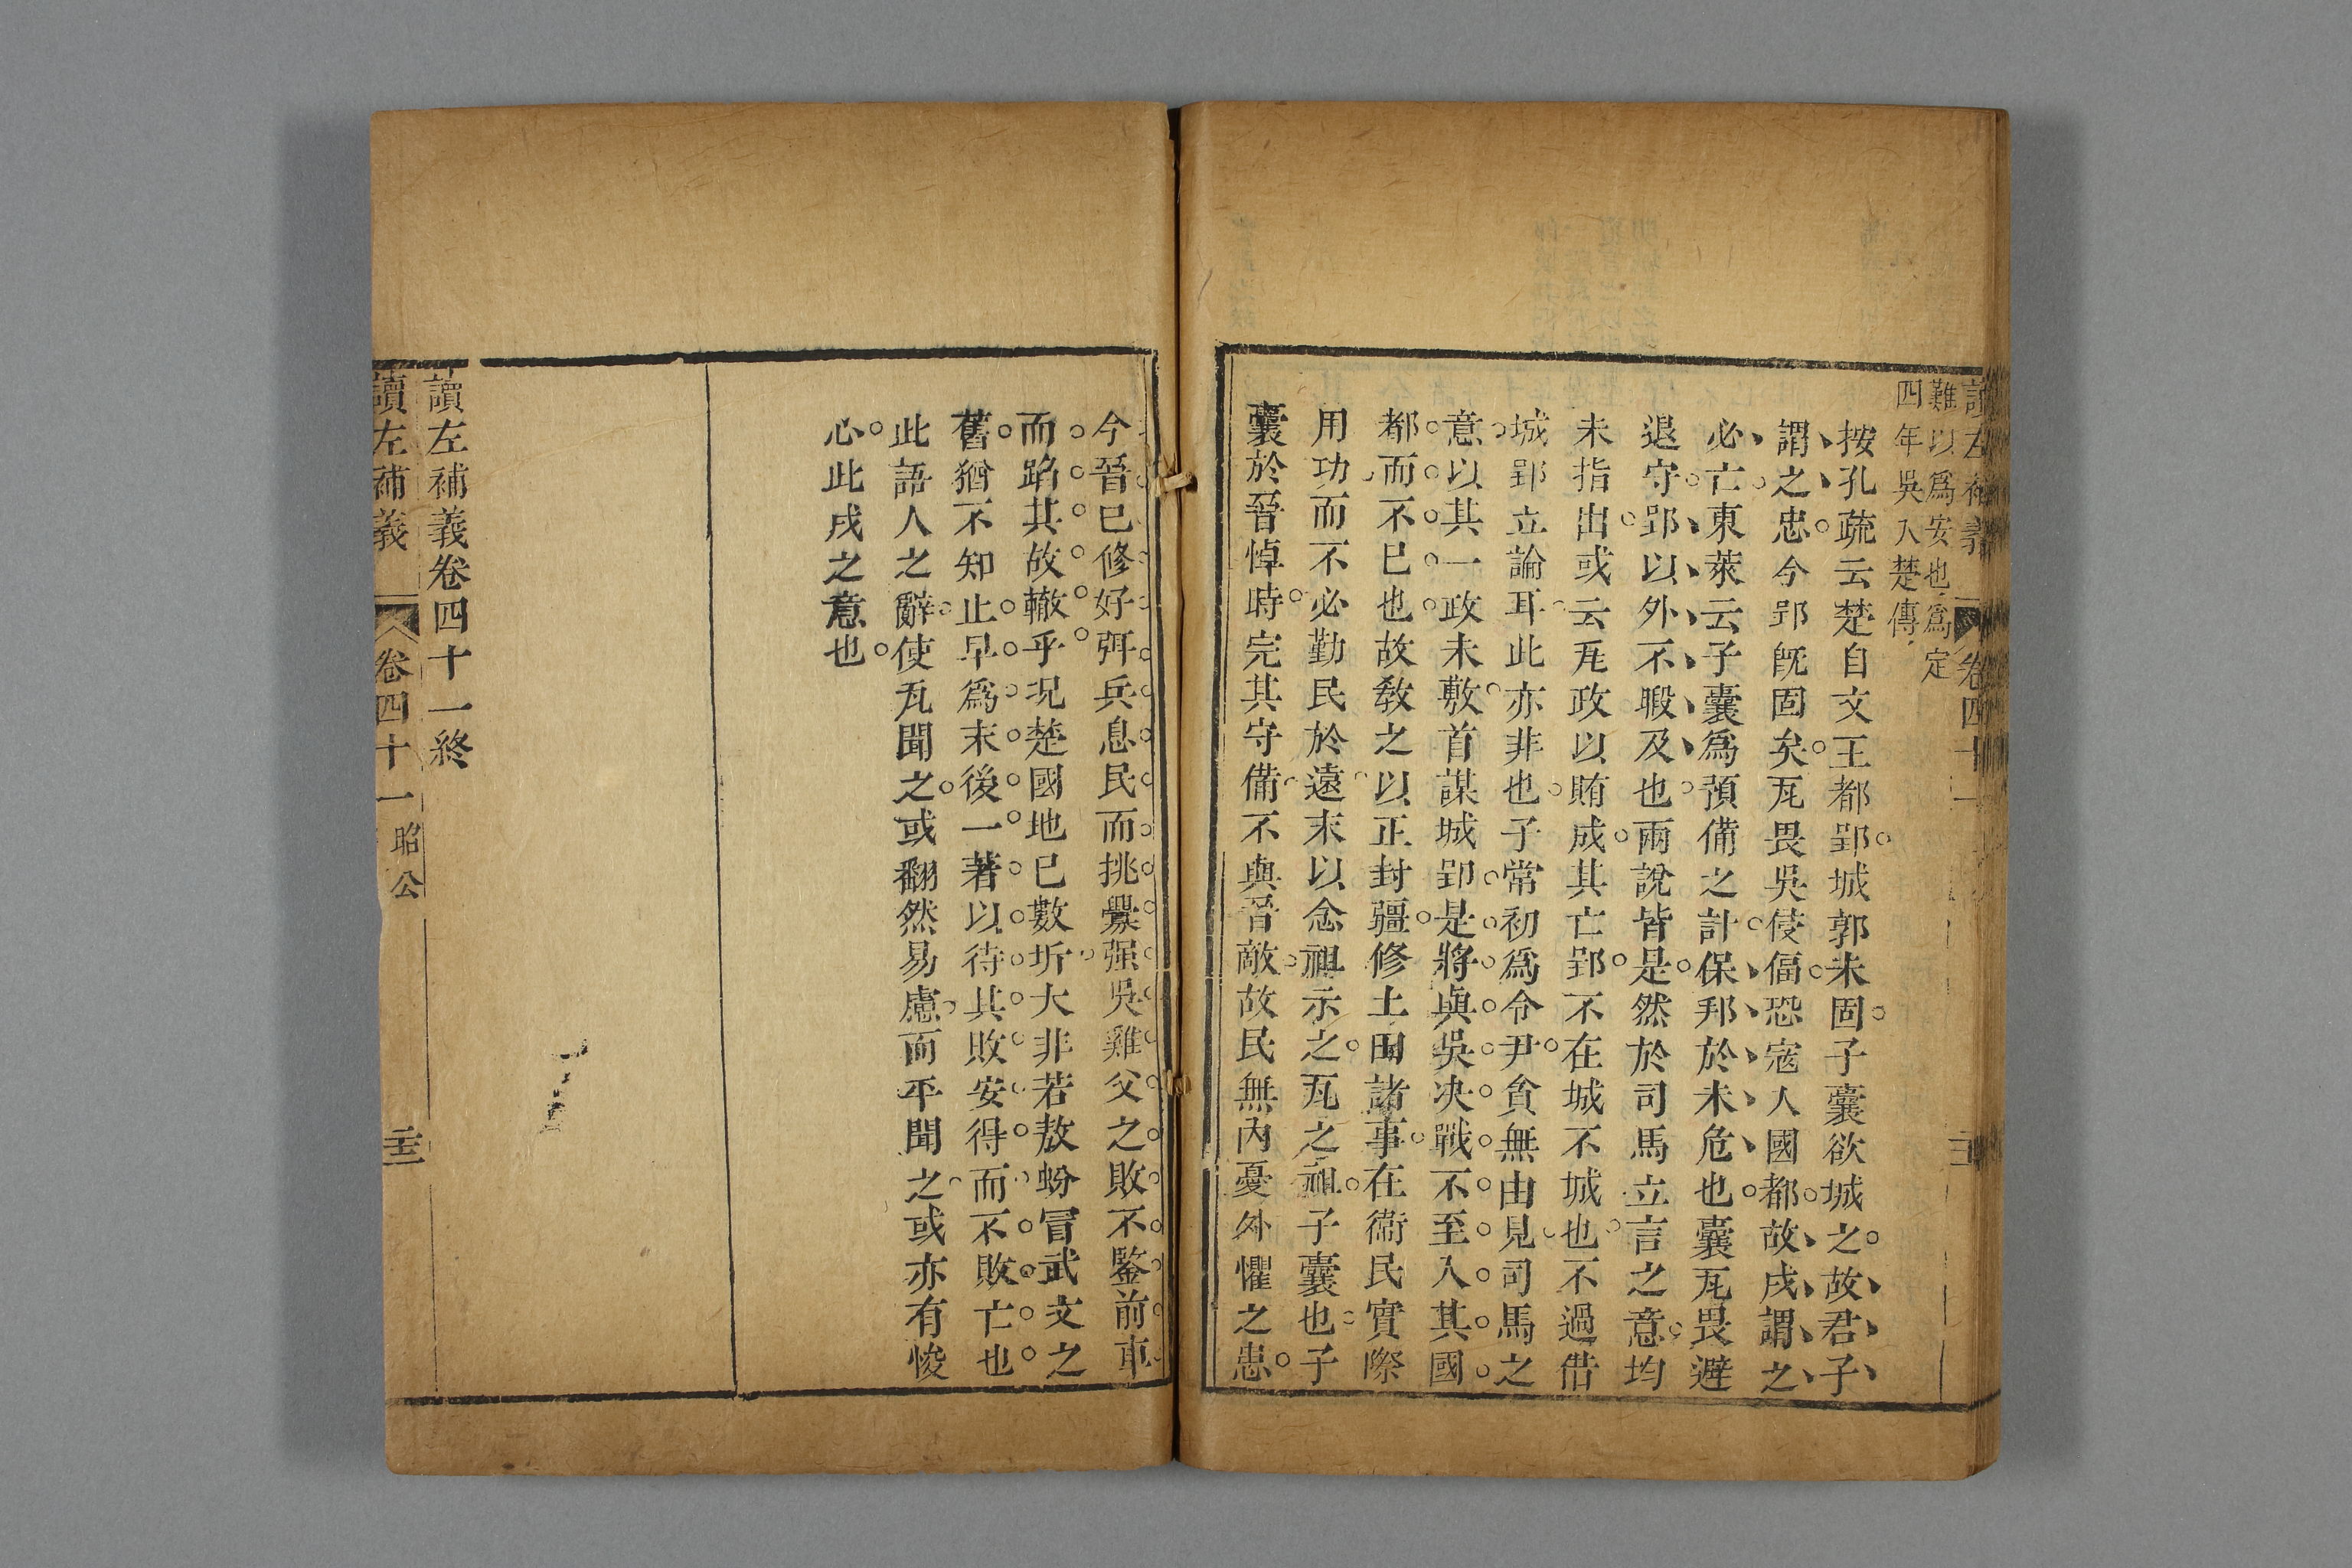 讀左補義 卷四十一
難以爲安也爲定
四年吳入楚傳
按孔疏云楚自文王都郢城郭未固子囊欲城之故君子
謂之忠今郢旣固矣瓦畏吳侵偪恐寇人國都故戌謂之
必亡東萊云子囊爲預備之計保邦於未危也囊瓦畏避
退守郢以外不暇及也兩說皆是然於司馬立言之意均
未指出或云瓦政以賄成其亡郢不在城不城也不過借
城郢立論耳此亦非也子常初爲令尹貪無由見司馬之
意以其一政未敷首謀城郢是將與吳决戰不至入其國
都而不已也故教之以正封疆修土田諸事在衞民實際
用功而不必勤民於遠末以念祖示之瓦之祖子囊也子
囊於晉悼時完其守備不與晉敵故民無內憂外懼之患
今晉已修好弭兵息民而挑釁强吳雞父之敗不鑒前車
而蹈其故轍乎况楚國地已數圻大非若敖蚡冒武文之
舊猶不知止早爲末後一著以待其敗安得而不敗亡也
此語人之辭使瓦聞之或翻然易慮而平聞之或亦有悛
心此戌之意也
讀左補義卷四十一終
讀左補義 卷四十一 昭公 二十三